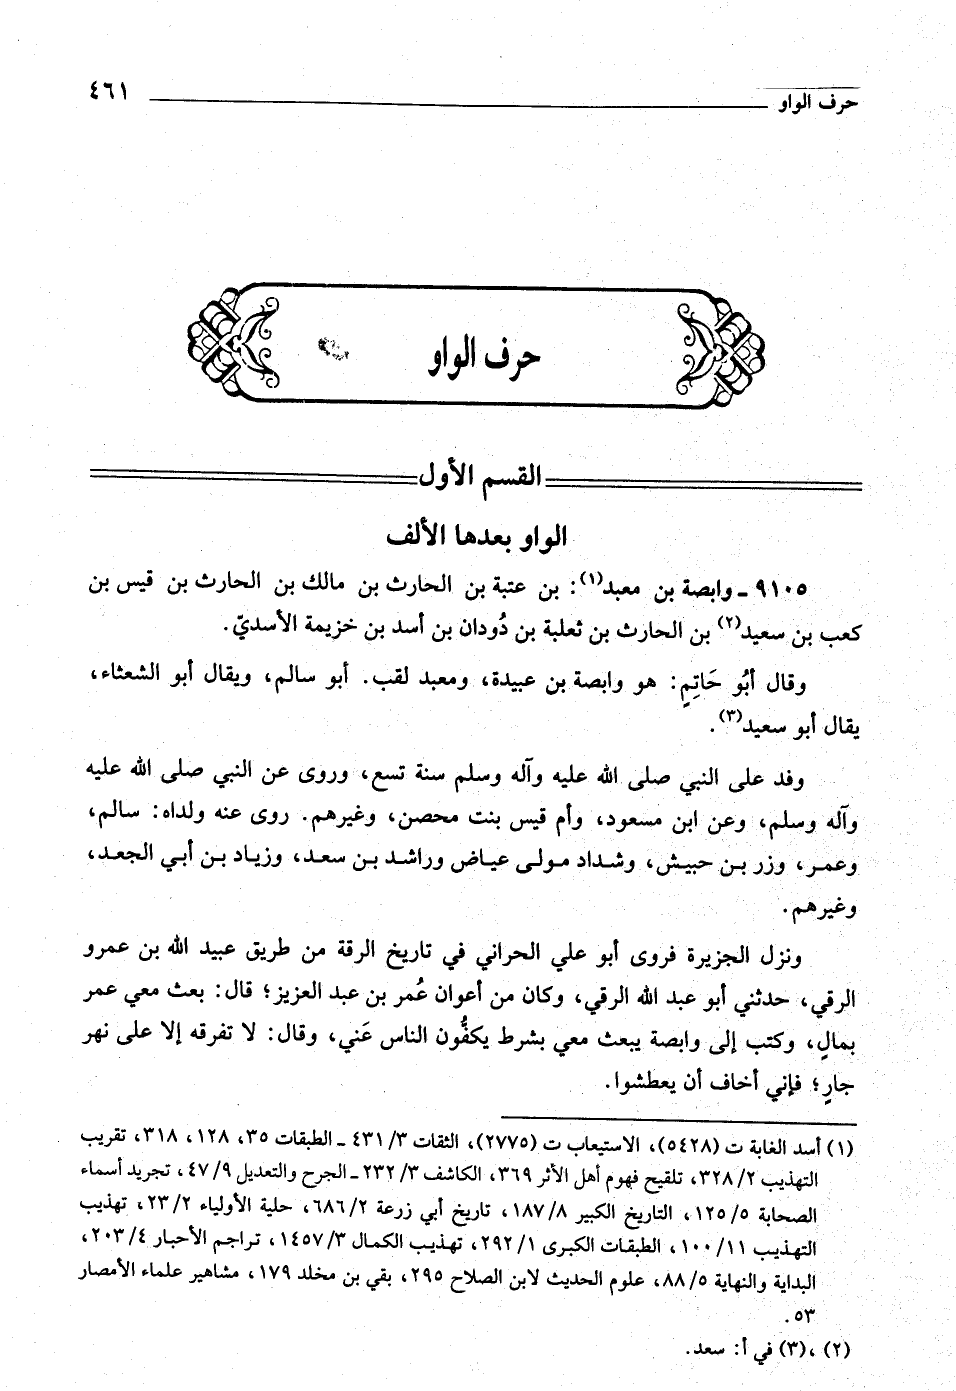 حرف الواو ٤٦١
حرف الواو
القسم الأول
الواو بعدها الألف
٩١٠٥ ـ وابصة بن معبد(١): بن عتبة بن الحارث بن مالك بن الحارث بن قيس بن
كعب بن سعيد(٢) بن الحارث بن ثعلبة بن دُودان بن أسد بن خزيمة الأسديّ.
وقال أَبُو حَاتِمٍ: هو وابصة بن عبيدة، ومعبد لقب. أبو سالم، ويقال أبو الشعثاء،
يقال أبو سعيد(٣).
وفد على النبي صلى الله عليه وآله وسلم سنة تسع، وروى عن النبي صلى الله عليه
وآله وسلم، وعن ابن مسعود، وأم قيس بنت محصن، وغيرهم. روى عنه ولداه: سالم،
وعمر، وزر بن حبيش، وشداد مولى عياض وراشد بن سعد، وزياد بن أبي الجعد،
وغيرهم.
ونزل الجزيرة فروى أبو علي الحراني في تاريخ الرقة من طريق عبيد الله بن عمرو
الرقي، حدثني أبو عبد الله الرقي، وكان من أعوان عُمر بن عبد العزيز؛ قال: بعث معي عمر
بمالٍ، وكتب إلى وابصة يبعث معي بشرط يكفُّون الناس عَني، وقال: لا تفرقه إلا على نهر
جارٍ؛ فإني أخاف أن يعطشوا.
(١) أسد الغابة ت (٥٤٢٨)، الاستيعاب ت (٢٧٧٥)، الثقات ٣/ ٤٣١ ـ الطبقات ٣٥، ١٢٨، ٣١٨، تقريب
التهذيب ٢/ ٣٢٨، تلقيح فهوم أهل الأثر ٣٦٩، الكاشف ٣/ ٢٣٢ ـ الجرح والتعديل ٩/ ٤٧، تجريد أسماء
الصحابة ٥/ ١٢٥، التاريخ الكبير ٨/ ١٨٧، تاريخ أبي زرعة ٢/ ٦٨٦، حلية الأولياء ٢/ ٢٣، تهذيب
التهذيب ١١/ ١٠٠، الطبقات الكبرى ١/ ٢٩٢، تهذيب الكمال ٣/ ١٤٥٧، تراجم الأحبار ٤/ ٢٠٣،
البداية والنهاية ٥/ ٨٨، علوم الحديث لابن الصلاح ٢٩٥، بقي بن مخلد ١٧٩، مشاهير علماء الأمصار
٥٣.
(٢) ،(٣) في أ: سعد.